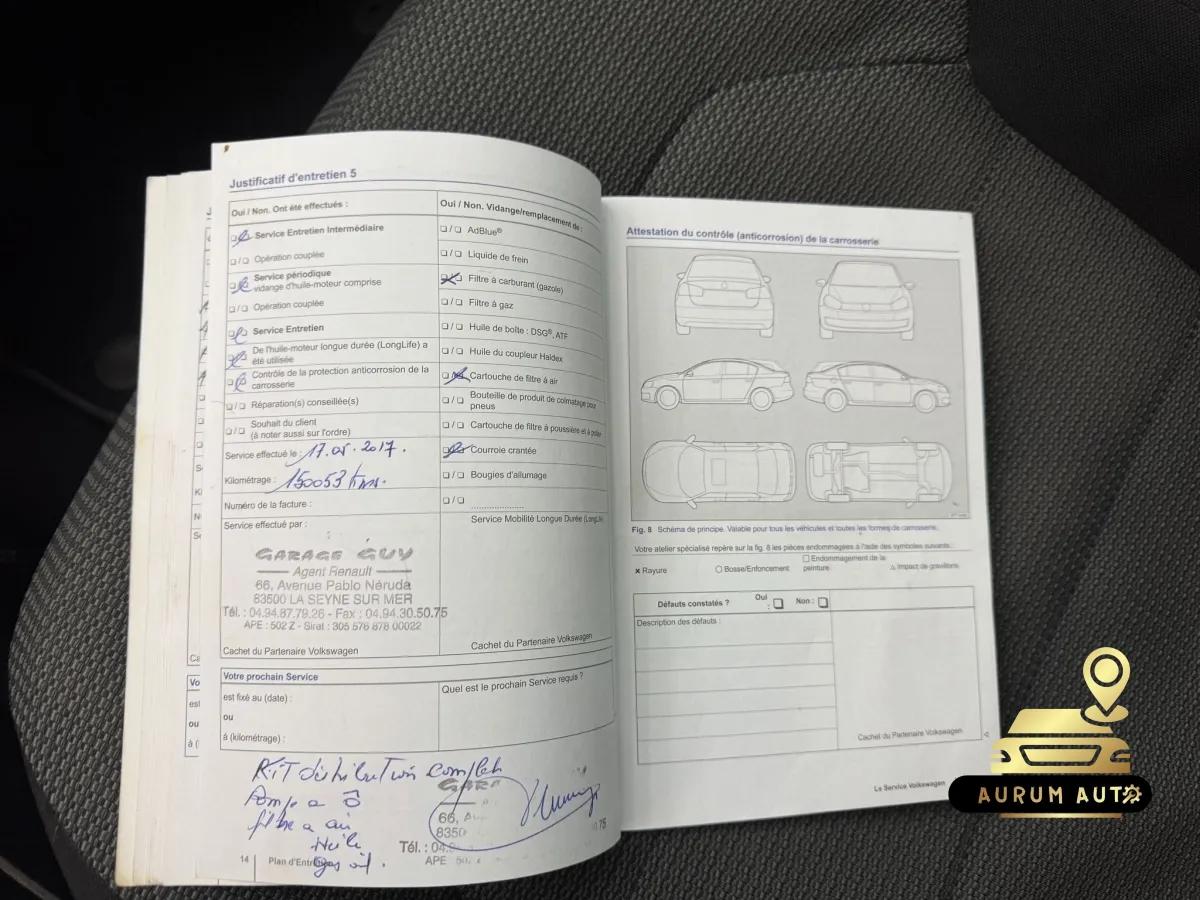 Justificatif d'entretien 5
Oui / Non. Ont été effectués :
Service Entretien Intermédiaire
Opération couplée
Service périodique
vidange d'huile-moteur comprise
Opération couplée
Service Entretien
De l'huile-moteur longue durée (LongLife) a
été utilisée
Contrôle de la protection anticorrosion de la
carrosserie
Réparation(s) conseillée(s)
Souhait du client
(à noter aussi sur l'ordre)
Service effectué le : 17.05.2017.
Kilométrage : 150053 kms.
Numéro de la facture :
Service effectué par :
GARAGE GUY
Agent Renault
66, Avenue Pablo Néruda
83500 LA SEYNE SUR MER
Tél. : 04.94.87.79.26 - Fax : 04.94.30.50.75
APE : 502 Z - Siret : 305 576 878 00022
Cachet du Partenaire Volkswagen
Oui / Non. Vidange/remplacement de :
AdBlue®
Liquide de frein
Filtre à carburant (gazole)
Filtre à gaz
Huile de boîte : DSG®, ATF
Huile du coupleur Haldex
Cartouche de filtre à air
Bouteille de produit de colmatage pour
pneus
Cartouche de filtre à poussière et à pollen
Courroie crantée
Bougies d'allumage
Service Mobilité Longue Durée (LongLife)
Cachet du Partenaire Volkswagen
Votre prochain Service
est fixé au (date) :
ou
à (kilométrage) :
Quel est le prochain Service requis ?
KIT distribution complet
Pompe a Ô
filtre a air
Huile
Gas oil.
GARA
66, A
8350
Tél. : 04.
APE
.75
14
Plan d'Entre
Attestation du contrôle (anticorrosion) de la carrosserie
Fig. 8 Schéma de principe. Valable pour tous les véhicules et toutes les formes de carrosserie.
Votre atelier spécialisé repère sur la fig. 8 les pièces endommagées à l'aide des symboles suivants :
Rayure
Bosse/Enfoncement
Endommagement de la
peinture
Impact de gravillons
Défauts constatés ?
Oui
:
Non :
Description des défauts :
Cachet du Partenaire Volkswagen
Le Service Volkswagen
AURUM AUTO